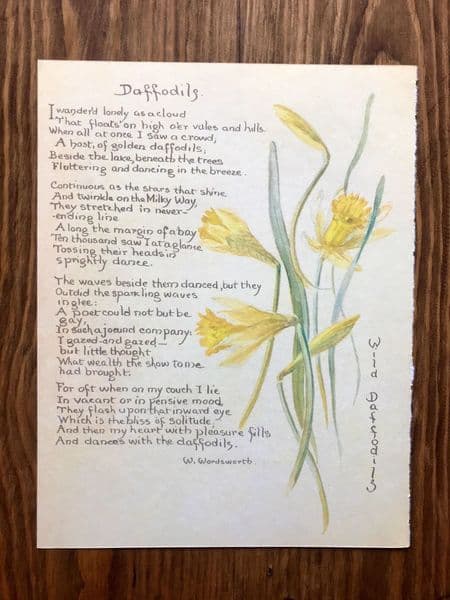 Daffodils.
I wander'd lonely as a cloud
That floats on high o'er vales and hills.
When all at once I saw a crowd,
A host, of golden daffodils,
Beside the lake, beneath the trees
Fluttering and dancing in the breeze.
Continuous as the stars that shine
And twinkle on the Milky Way,
They stretched in never-
-ending line
Along the margin of a bay
Ten thousand saw I at a glance
Tossing their heads in
sprightly dance.
The waves beside them danced, but they
Outdid the sparkling waves
in glee:
A poet could not but be
gay,
In such a jocund company:
I gazed-and gazed-
but little thought
What wealth the show to me
had brought.
For oft when on my couch I lie
In vacant or in pensive mood,
They flash upon that inward eye
Which is the bliss of solitude,
And then my heart with pleasure fills
And dances with the daffodils.
W. Wordsworth.
Wild Daffodils